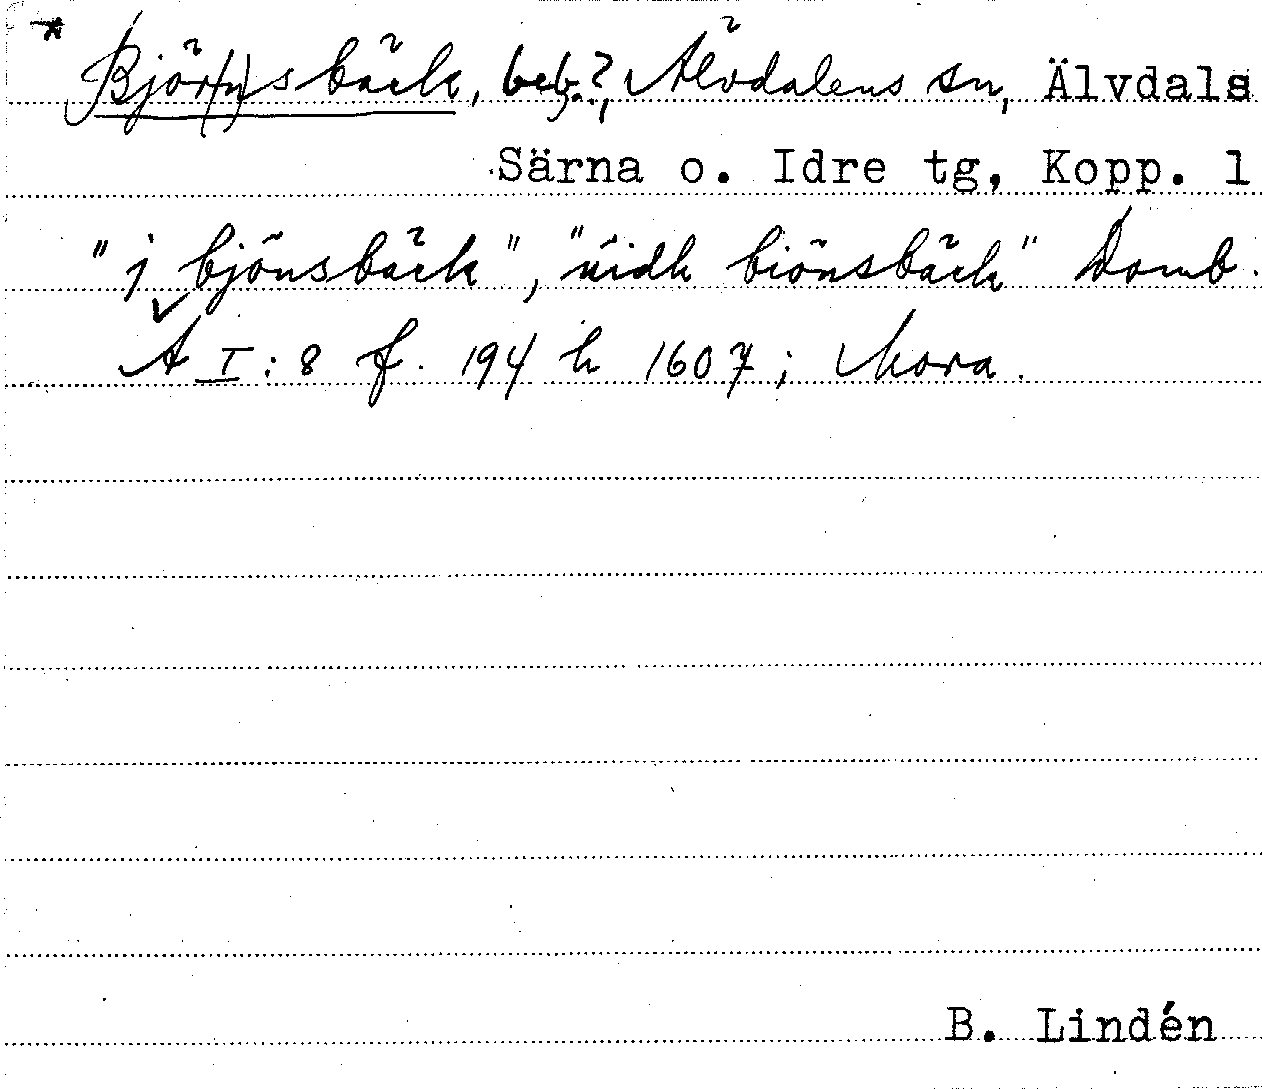 * Björ(n)sbäck, beb.?, Älvdalens sn, Älvdals
Särna o. Idre tg, Kopp. l
"j bjönsbäck", "uidh biönsbäck" Domb.
Å I:8 f. 194 h 1607; Mora.
B. Lindén